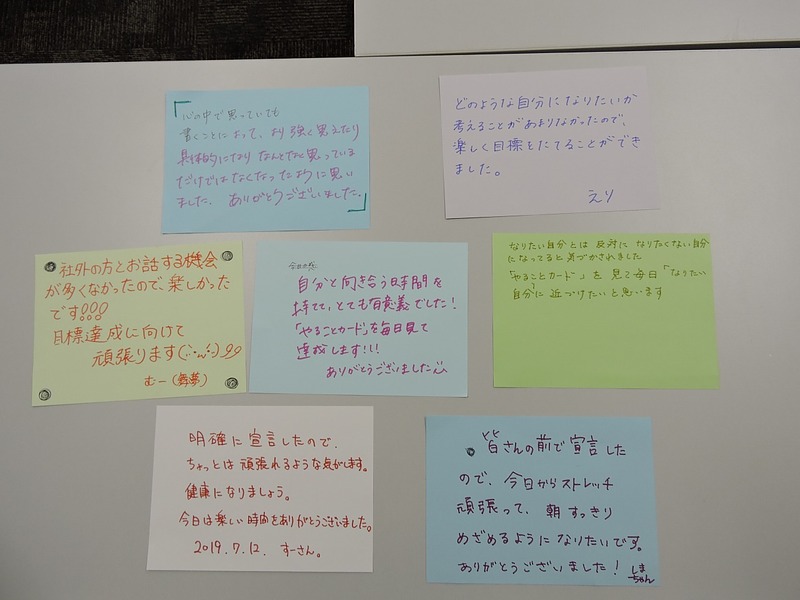 心の中で思っていても
書くことによって、より強く思えたり
具体的になり なんとなく思っている
だけではなくなったように思い
ました。 ありがとうございました。
どのような自分になりたいか
考えることがあまりなかったので、
楽しく目標をたてることができ
ました。
えり
社外の方とお話する機会
が多くなかったので、楽しかった
です!!!
目標達成に向けて
頑張ります
むー(舞夢)
今日の感想
自分と向き合う時間を
持てて、とても有意義でした!
「やることカード」を毎日見て
達成します!!
ありがとうございました
なりたい自分とは 反対に なりたくない自分
になってると気づかされました
「やることカード」を 見て毎日「なりたい
自分」に 近づけたいと思います
明確に宣言したので、
ちゃっとは頑張れるような気がします。
健康になりましょう。
今日は楽しい時間をありがとうございました。
2019.7.12. すーさん。
皆さんの前で宣言した
ので、今日からストレッチ
頑張って、朝すっきり
めざめるようになりたいです。
ありがとうございました!
しま
ちゃん